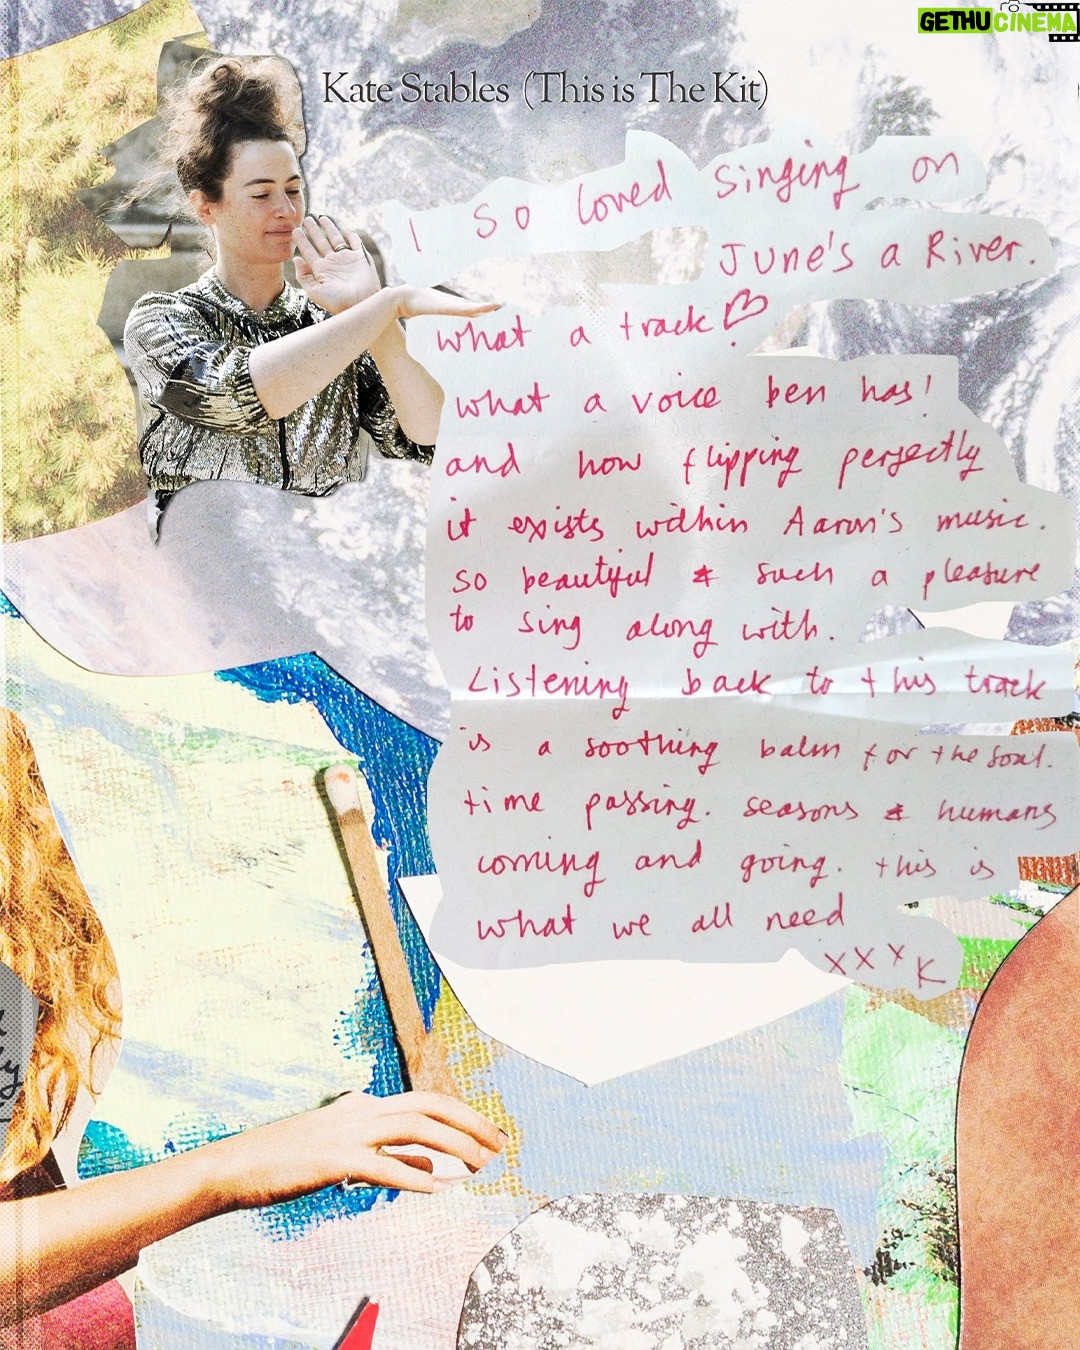 GETHUCINEMA
Kate Stables (This is The Kit)
I so loved singing on
June's a River.
what a track!
what a voice ben has!
and how flipping perfectly
it exists within Aaron's music.
so beautiful & such a pleasure
to sing along with.
Listening back to this track
is a soothing balm for the soul.
time passing. seasons & humans
coming and going. this is
what we all need
xxx K